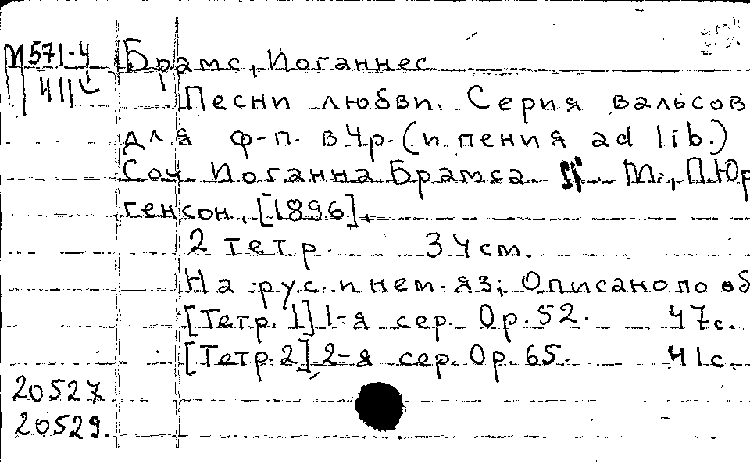 М571-4 Брамс, Иоганнес
411
Песни любви. Серия вальсов
для ф-п. в 4р. (и пения ad lib.)
Соч. Иоганна Брамса. М., П. Юр
генсон, [1896].
2 тетр. 34 см.
На рус. и нем. яз; Описано по об
[Тетр. 1] 1-я сер. Op. 52. 47с.
[Тетр. 2] 2-я сер. Op. 65. 41с.
20527.
20529.